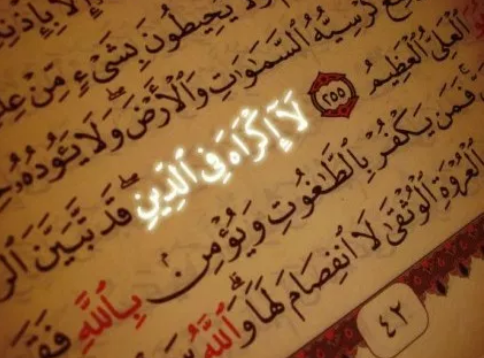 يُحِيطُونَ بِشَىْءٍ مِّنْ
كُرْسِيُّهُ السَّمَٰوَٰتِ وَالْأَرْضَ ۖ وَلَا يَـُٔودُهُۥ
الْعَلِىُّ الْعَظِيمُ ٢٥٥ لَآ إِكْرَاهَ فِى الدِّينِ ۖ قَد تَّبَيَّنَ
فَمَن يَكْفُرْ بِالطَّٰغُوتِ وَيُؤْمِنۢ بِاللَّهِ
الْعُرْوَةِ الْوُثْقَىٰ لَا انفِصَامَ لَهَا ۗ وَاللَّهُ
٤٢